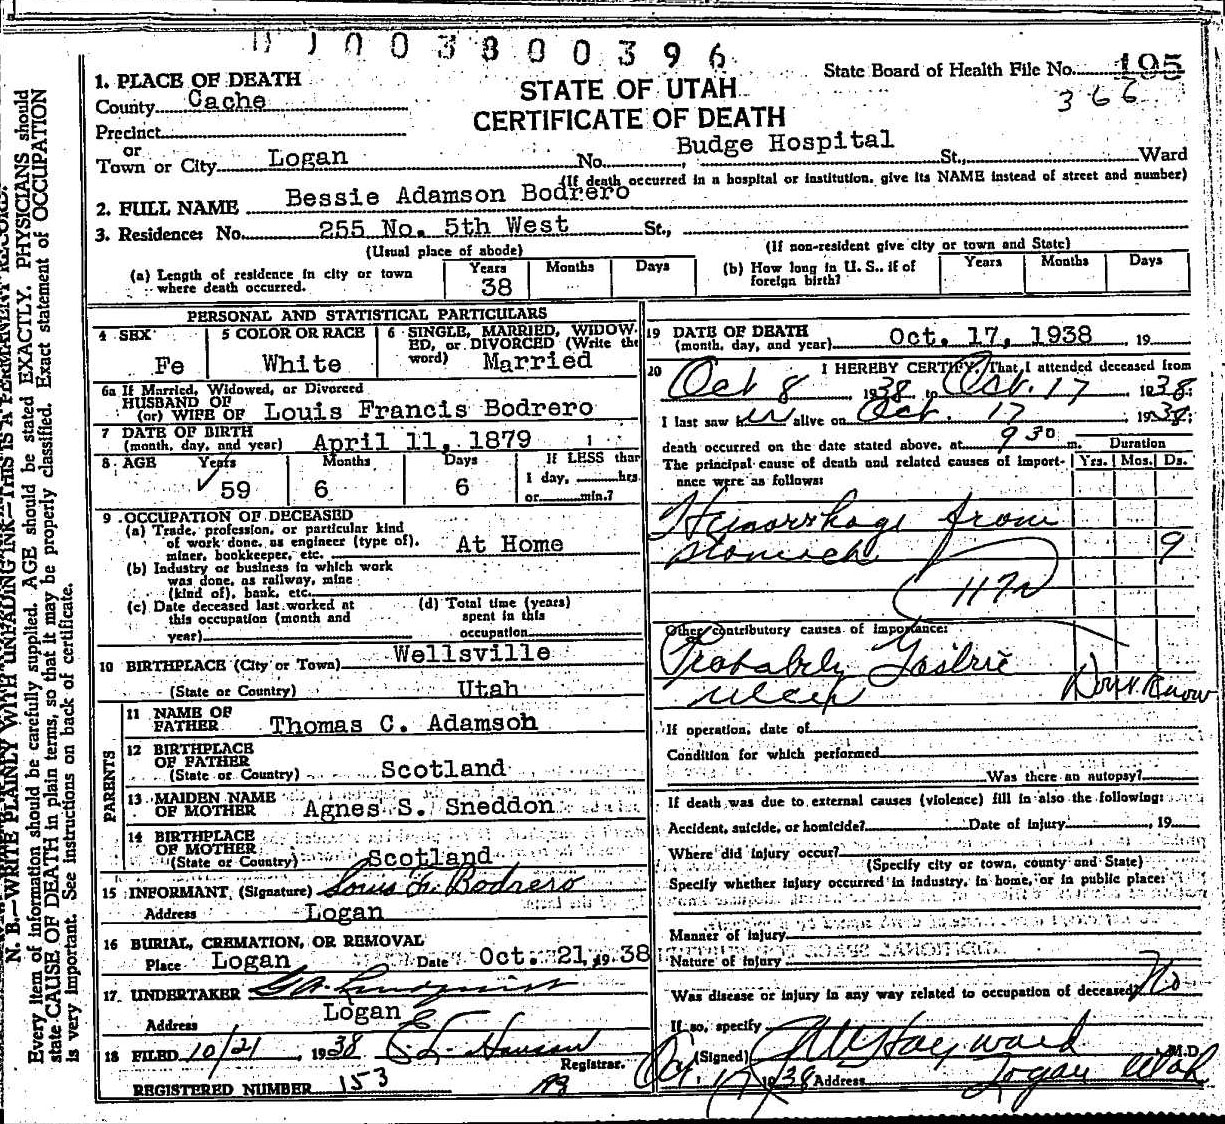 0 3 8 0 0 3 9 6
State Board of Health File No. 195
366
STATE OF UTAH
CERTIFICATE OF DEATH
1. PLACE OF DEATH
County Cache
Precinct
or
Town or City Logan No. Budge Hospital St., Ward
(If death occurred in a hospital or institution, give its NAME instead of street and number)
2. FULL NAME Bessie Adamson Bodrero
3. Residence: No. 255 No. 5th West St.,
(Usual place of abode) (If non-resident give city or town and State)
(a) Length of residence in city or town where death occurred. Years 38 Months Days
(b) How long in U. S., if of foreign birth? Years Months Days
PERSONAL AND STATISTICAL PARTICULARS
4 SEX Fe
5 COLOR OR RACE White
6 SINGLE, MARRIED, WIDOWED, or DIVORCED (Write the word) Married
6a If Married, Widowed, or Divorced
HUSBAND OF
(or) WIFE OF Louis Francis Bodrero
7 DATE OF BIRTH
(month, day, and year) April 11, 1879
8 AGE Years 59 Months 6 Days 6
If LESS than
1 day, hrs
or min.?
9 OCCUPATION OF DECEASED
(a) Trade, profession, or particular kind
of work done, as engineer (type of),
miner, bookkeeper, etc. At Home
(b) Industry or business in which work
was done, as railway, mine
(kind of), bank, etc.
(c) Date deceased last worked at
this occupation (month and
year)
(d) Total time (years)
spent in this
occupation
10 BIRTHPLACE (City or Town) Wellsville
(State or Country) Utah
PARENTS
11 NAME OF
FATHER Thomas C. Adamson
12 BIRTHPLACE
OF FATHER
(State or Country) Scotland
13 MAIDEN NAME
OF MOTHER Agnes S. Sneddon
14 BIRTHPLACE
OF MOTHER
(State or Country) Scotland
15 INFORMANT (Signature) Louis F. Bodrero
Address Logan
16 BURIAL, CREMATION, OR REMOVAL
Place Logan Date Oct. 21, 19 38
17 UNDERTAKER
Address Logan
18 FILED 10/21, 1938 Hansen
Registrar.
REGISTERED NUMBER 153
19 DATE OF DEATH
(month, day, and year) Oct. 17, 1938, 19
20 I HEREBY CERTIFY, That I attended deceased from
Oct 8 1938 to Oct. 17 1938
I last saw her alive on Oct. 17 1938;
death occurred on the date stated above, at 9 30 m.
Duration
The principal cause of death and related causes of importance were as follows: Yrs. Mos. Ds.
Hemorrhage from
stomach 9
117a
Other contributory causes of importance:
Probably Gastric
ulcer Don't Know
If operation, date of
Condition for which performed
Was there an autopsy?
If death was due to external causes (violence) fill in also the following:
Accident, suicide, or homicide? Date of injury , 19
Where did injury occur?
(Specify city or town, county and State)
Specify whether injury occurred in industry, in home, or in public place:
Manner of injury
Nature of injury
Was disease or injury in any way related to occupation of deceased? No
If so, specify
(Signed) Hayward M.D.
Oct. 17 1938 Address Logan Utah
N. B.—WRITE PLAINLY WITH UNFADING INK—THIS IS A PERMANENT RECORD.
Every item of information should be carefully supplied. AGE should be stated EXACTLY. PHYSICIANS should
state CAUSE OF DEATH in plain terms, so that it may be properly classified. Exact statement of OCCUPATION
is very important. See instructions on back of certificate.